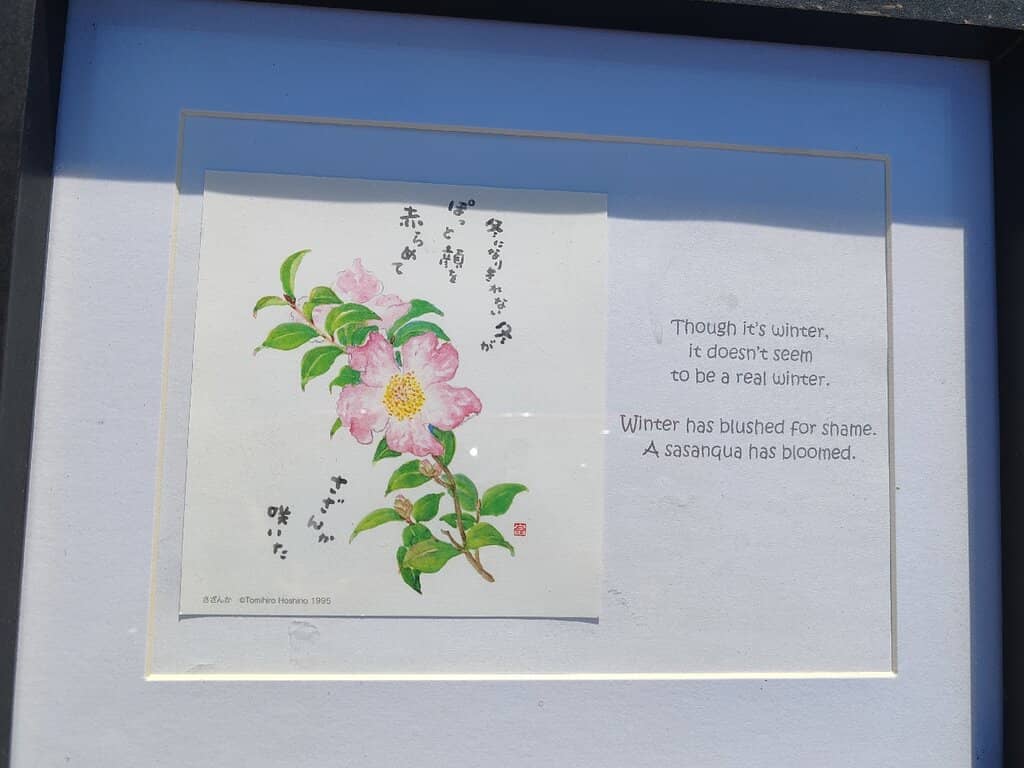 冬になりきれない冬が
ぽっと顔を
赤らめて
さざんか
咲いた
さざんか ©Tomihiro Hoshino 1995
Though it's winter,
it doesn't seem
to be a real winter.
Winter has blushed for shame.
A sasanqua has bloomed.